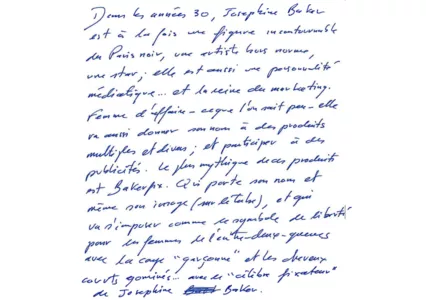 Dans les années 30, Joséphine Baker
est à la fois une figure incontournable
du Paris noir, une artiste hors norme,
une star ; elle est aussi une personnalité
médiatique... et la reine du marketing.
Femme d'affaires - ce que l'on sait peu - elle
va aussi donner son nom à des produits
multiples et divers ; et participer à des
publicités. Le plus mythique de ces produits
est Bakerfix. Qui porte son nom et
même son image (sur le tube), et qui
va s'imposer comme le symbole de liberté
pour les femmes de l'entre-deux-guerres
avec la coupe "garçonne" et les cheveux
courts gominés... avec le "célèbre fixateur"
de Joséphine Baker.